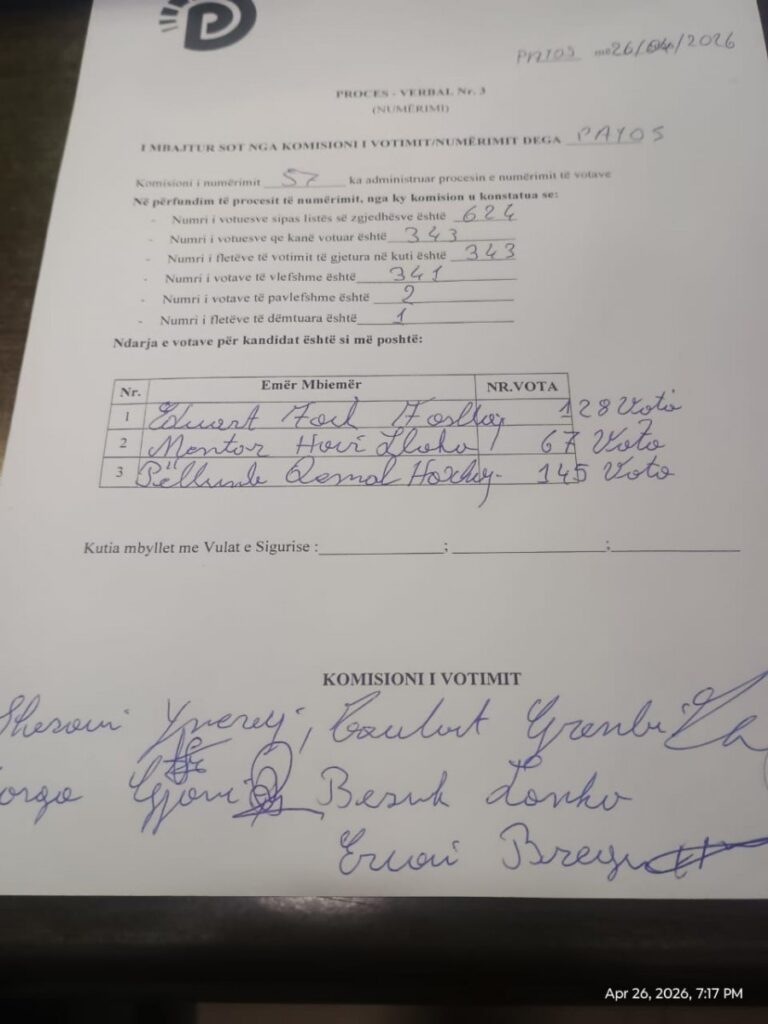 PATOS më 26/04/2026
PROCES - VERBAL Nr. 3
(NUMËRIMI)
I MBAJTUR SOT NGA KOMISIONI I VOTIMIT/NUMËRIMIT DEGA PATOS
Komisioni i numërimit 57 ka administruar procesin e numërimit të votave
Në përfundim të procesit të numërimit, nga ky komision u konstatua se:
- Numri i votuesve sipas listës së zgjedhësve është 624
- Numri i votuesve qe kanë votuar është 343
- Numri i fletëve të votimit të gjetura në kuti është 343
- Numri i votave të vlefshme është 341
- Numri i votave të pavlefshme është 2
- Numri i fletëve të dëmtuara është 1
Ndarja e votave për kandidat është si më poshtë:
Nr. Emër Mbiemër NR.VOTA
1 Eduart 128 Vota
2 Mentor 67 Vota
3 Pëllumb Qemal Hoxhaj 145 Vota
Kutia mbyllet me Vulat e Sigurise : ; ;
KOMISIONI I VOTIMIT
Gjoni Besnik